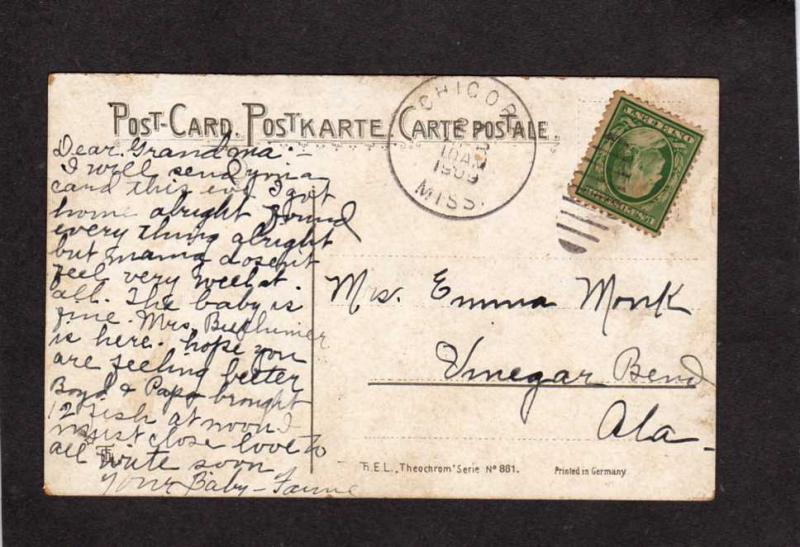 POST-CARD. POSTKARTE. CARTE POSTALE.
CHICOR
10 AM
1909
MISS.
Dear Grandma:-
I will send you a
card this eve I got
home alright found
every thing alright
but mama dosent
feel very well at
all. The baby is
fine. Mrs.
is here. hope you
are feeling better
Boyd & Papa brought
12 fish at noon I
must close love to
all write soon
Your Baby-
Mrs. Emma Monk
Vinegar Bend
Ala-
T.S.E.L. „Theochrom" Serie Nº 881.
Printed in Germany